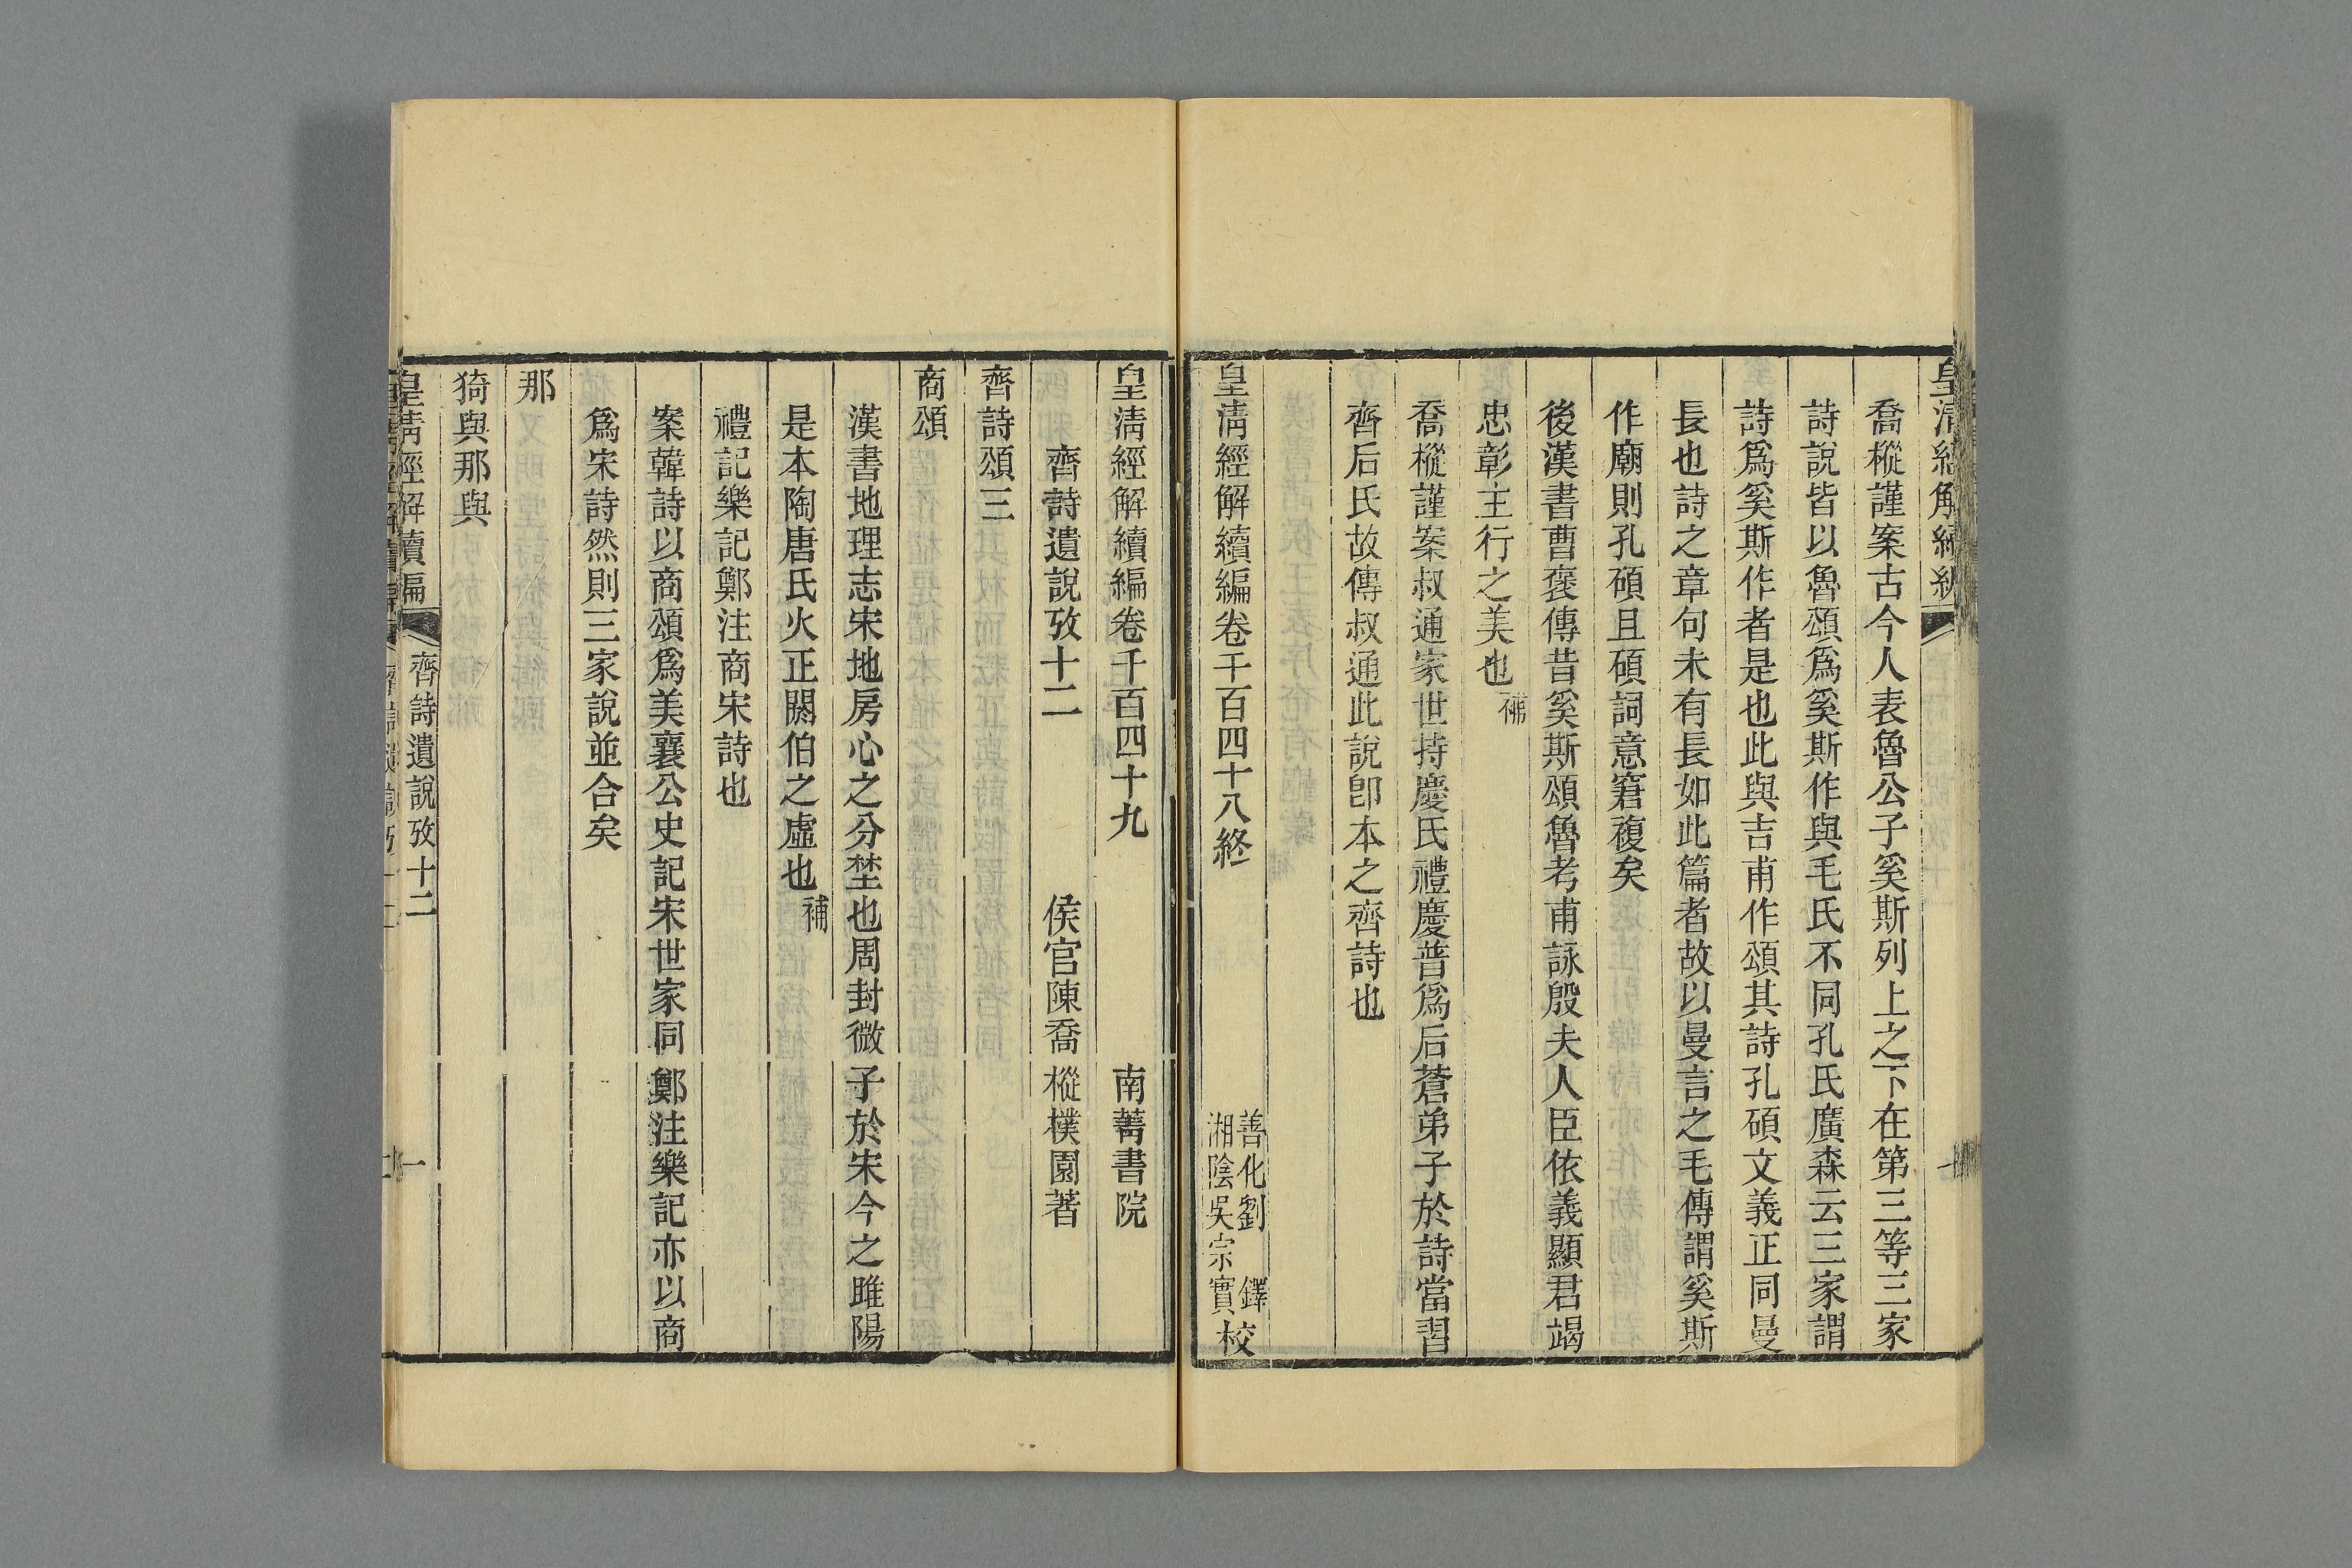 喬樅謹案古今人表魯公子奚斯列上之下在第三等三家
詩說皆以魯頌爲奚斯作與毛氏不同孔氏廣森云三家謂
詩爲奚斯作者是也此與吉甫作頌其詩孔碩文義正同曼
長也詩之章句未有長如此篇者故以曼言之毛傳謂奚斯
作廟則孔碩且碩詞意窘複矣
後漢書曹褒傳昔奚斯頌魯考甫詠殷夫人臣依義顯君竭
忠彰主行之美也補
喬樅謹案叔通家世持慶氏禮慶普爲后蒼弟子於詩當習
齊后氏故傳叔通此說卽本之齊詩也
皇淸經解續編卷千百四十八終
善化劉鐸
湘陰吳宗實校
皇淸經解續編卷千百四十九
南菁書院
齊詩遺說攷十二
侯官陳喬樅樸園著
齊詩頌三
商頌
漢書地理志宋地房心之分埜也周封微子於宋今之雎陽
是本陶唐氏火正閼伯之虛也補
禮記樂記鄭注商宋詩也
案韓詩以商頌爲美襄公史記宋世家同鄭注樂記亦以商
爲宋詩然則三家說並合矣
那
猗與那與
皇淸經解續編
齊詩遺說攷十二
一